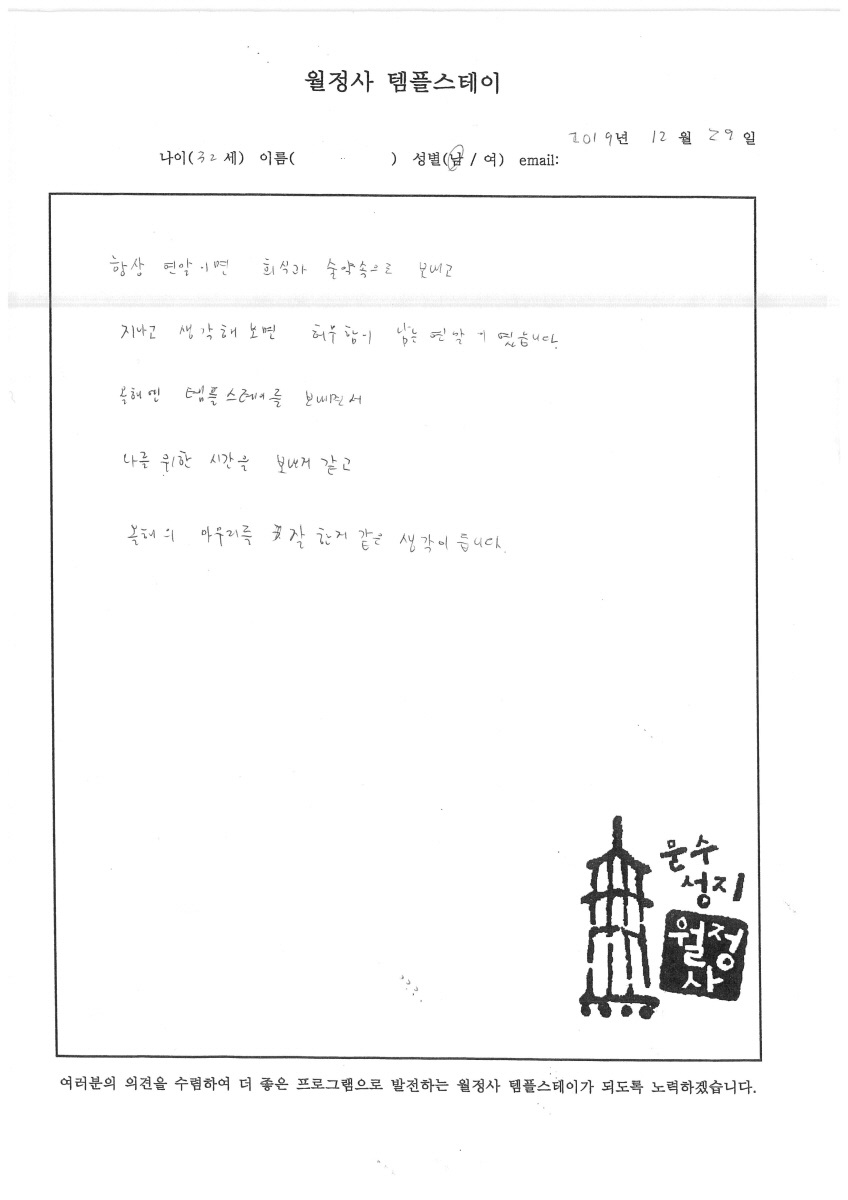 월정사 템플스테이
2019년 12월 29일
나이(32세) 이름( ) 성별(남 / 여) email:
항상 연말이면 회식과 술약속으로 보내고
지나고 생각해보면 허무함이 남는 연말이였습니다.
올해엔 템플스테이를 보내면서
나를 위한 시간을 보낸거 같고
올해의 마무리를 잘 한거 같은 생각이 듭니다.
문수
성지
월정
사
여러분의 의견을 수렴하여 더 좋은 프로그램으로 발전하는 월정사 템플스테이가 되도록 노력하겠습니다.